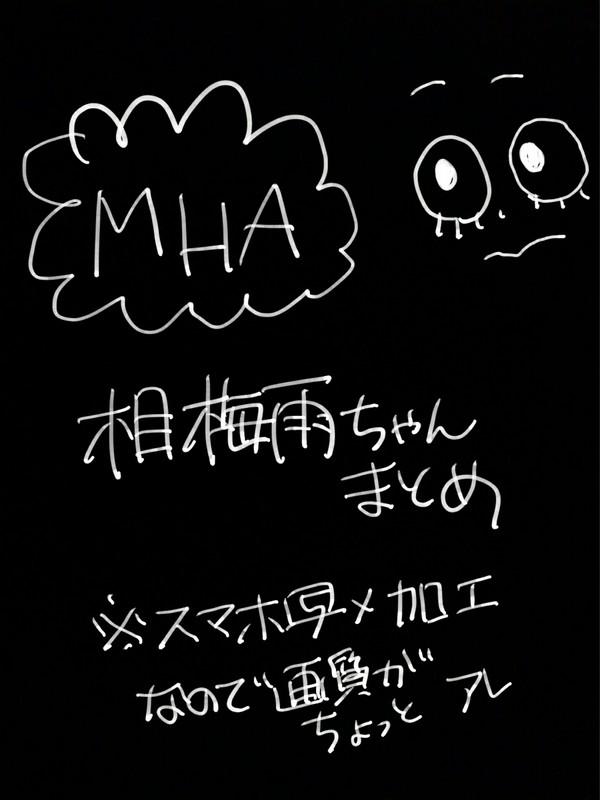 MHA
相梅雨ちゃん
まとめ
※スマホ写メ加工
なので画質が
ちょっと アレ